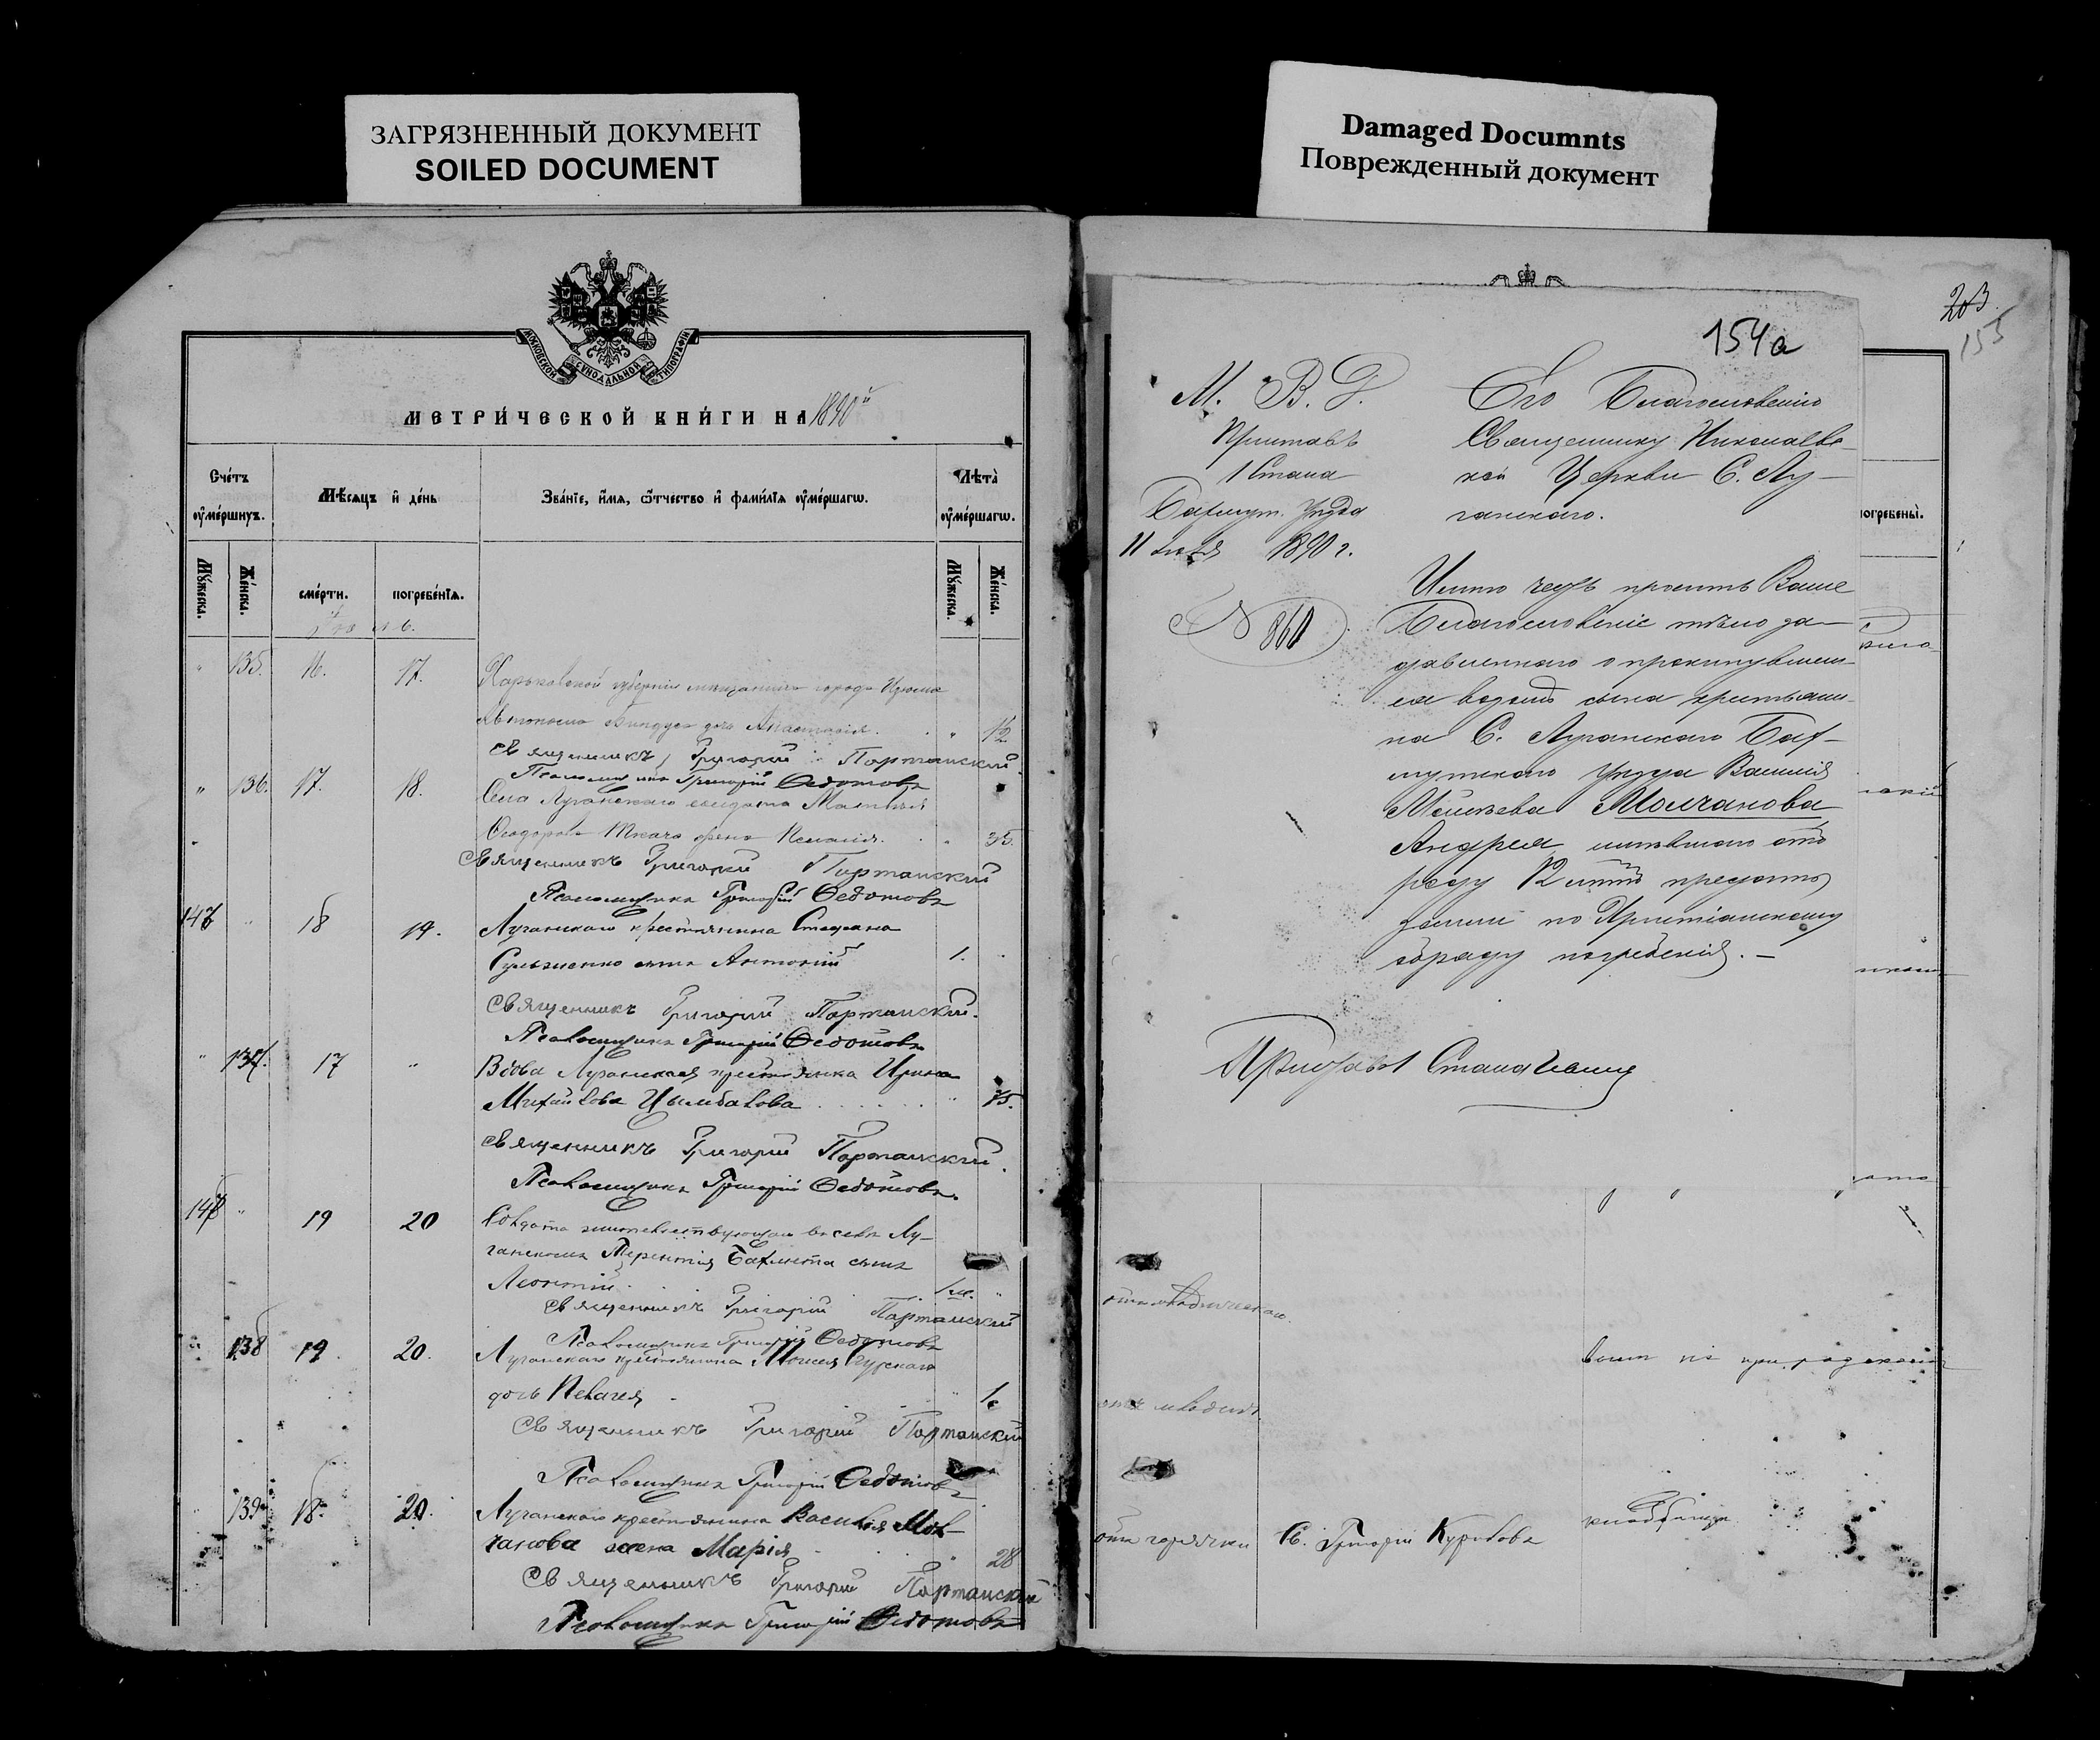 ЗАГРЯЗНЕННЫЙ ДОКУМЕНТ
SOILED DOCUMENT
Damaged Documnts
Поврежденный документ
МОСКОВСКОЙ СѴНОДАЛЬНОЙ ТИПОГРАФІИ
МЕТРИ́ЧЕСКОЙ КНИ́ГИ НА 1890й
Сче́тъ
ᲂу҆ме́ршихъ.
Мѣ́сяцъ и҆ де́нь
Зва́нїе, и҆́мѧ, ѻ҆́тчество и҆ фами́лїѧ ᲂу҆ме́ршагѡ.
Лѣта̀
ᲂу҆ме́ршагѡ.
Мꙋ́жеска.
Же́нска.
сме́рти.
погребе́нїѧ.
Мꙋ́жеска.
Же́нска.
" 135. 16. 17. Харьковской губерніи мещанина города Изюма
дочь Анастасія. " 12
Священникъ Григорій Портанскій
Псаломщикъ Григорій Федотовъ
" 136. 17. 18. Села Луганскаго солдата Матвѣя
Ѳеодорова Ткача жена " 35.
Священникъ Григорій Портанскій
Псаломщикъ Григорій Федотовъ
147 " 18 19. Луганскаго крестьянина Стефана
сынъ Антоній 1.
Священникъ Григорій Портанскій.
Псаломщикъ Григорій Федотовъ
" 137. 17 " Вдова Луганская крестьянка Ирина
Михайлова Цымбалова " 75.
Священникъ Григорій Портанскій.
Псаломщикъ Григорій Федотовъ.
148 " 19 20 Солдата жительствующаго въ селѣ Лу-
ганскомъ Терентія Бахмета сынъ
Леонтій 1м. "
Священникъ Григорій Портанскій
Псаломщикъ Григорій Федотовъ
" 138 19 20. Луганскаго крестьянина Моисея Гурскаго
дочь Пелагея " 1
Священникъ Григорій Портанскій
Псаломщикъ Григорій Федотовъ
139 18. 20. Луганскаго крестьянина Василія Мол-
чанова жена Марія " 28
Священникъ Григорій Портанскій
Псаломщикъ Григорій Федотовъ
203.
155
154а
М. В. Д.
Приставъ
1 Стана
Бахмут. Уѣзда
11 іюля 1890 г.
N 860
Его Благословенію
Священнику Николаев-
кой Церкви С. Лу-
ганскаго.
Имѣю честь просить Ваше
Благословеніе тѣло за-
давленнаго опрокинувшей-
ся сына крестьяни-
на С. Луганскаго Бах-
мутскаго Уѣзда Василія
Моисѣева Молчанова
Андрея имѣвшаго отъ
роду 12 лѣтъ предать
землѣ по Христіанскому
обряду погребенія. —
Приставъ 1 Стана
погребены̀.
отъ
от горячки Св. Григорій кладбищѣ